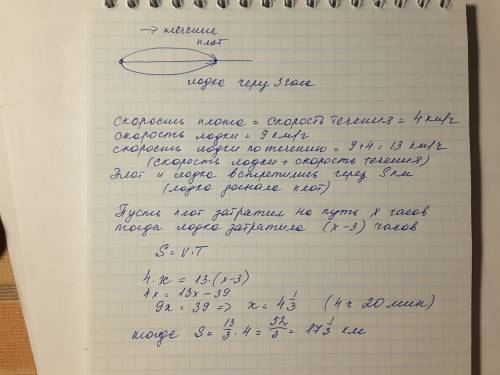 → течение
плот
лодка через 3 часа
скорость плота = скорость течения = 4 км/ч
скорость лодки = 9 км/ч
скорость лодки по течению = 9+4 = 13 км/ч
(скорость лодки + скорость течения)
Плот и лодка встретились через S км
(лодка догнала плот)
Пусть плот затратил на путь x часов
тогда лодка затратила (x-3) часов
S = V·T
4·x = 13·(x-3)
4x = 13x-39
9x = 39 => x = 4 1/3 (4 ч 20 мин)
тогда S = 13/3 · 4 = 52/3 = 17 1/3 км